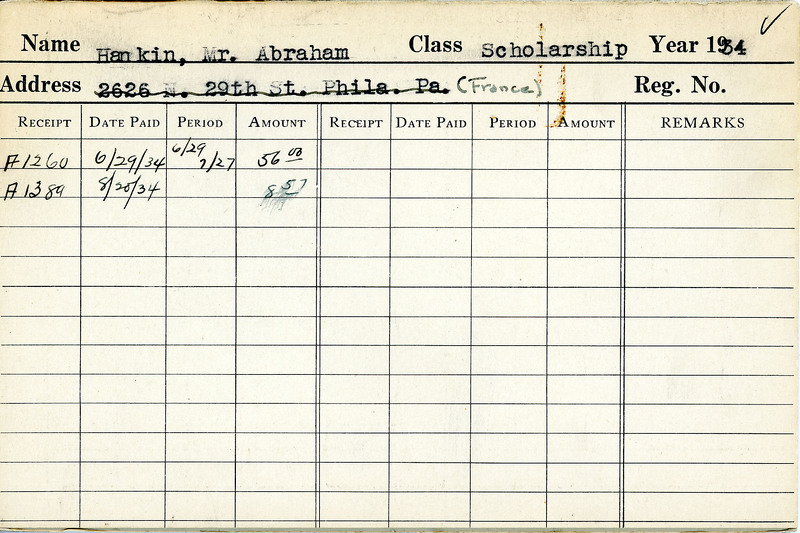 Name Hankin, Mr. Abraham Class Scholarship Year 1934
Address 2626 N. 29th St. Phila. Pa. (France) Reg. No.
RECEIPT DATE PAID PERIOD AMOUNT RECEIPT DATE PAID PERIOD AMOUNT REMARKS
A1260 6/29/34 6/29 7/27 56 00
A1389 8/20/34 8 57